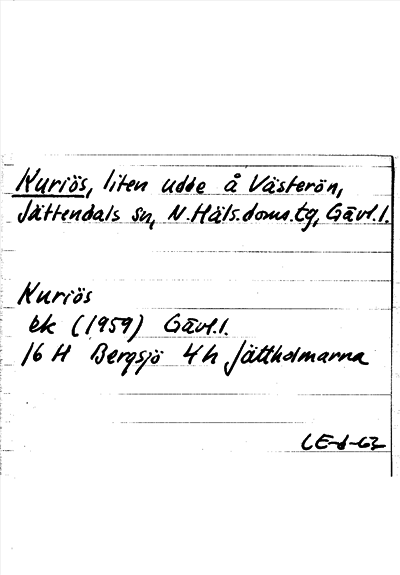 Kuriös, liten udde å Västerön,
Jättendals sn, N.Häls.doms.tg, Gävl.l.
Kuriös
ek (1959) Gävl.l.
16 H Bergsjö 4 h Jättholmarna